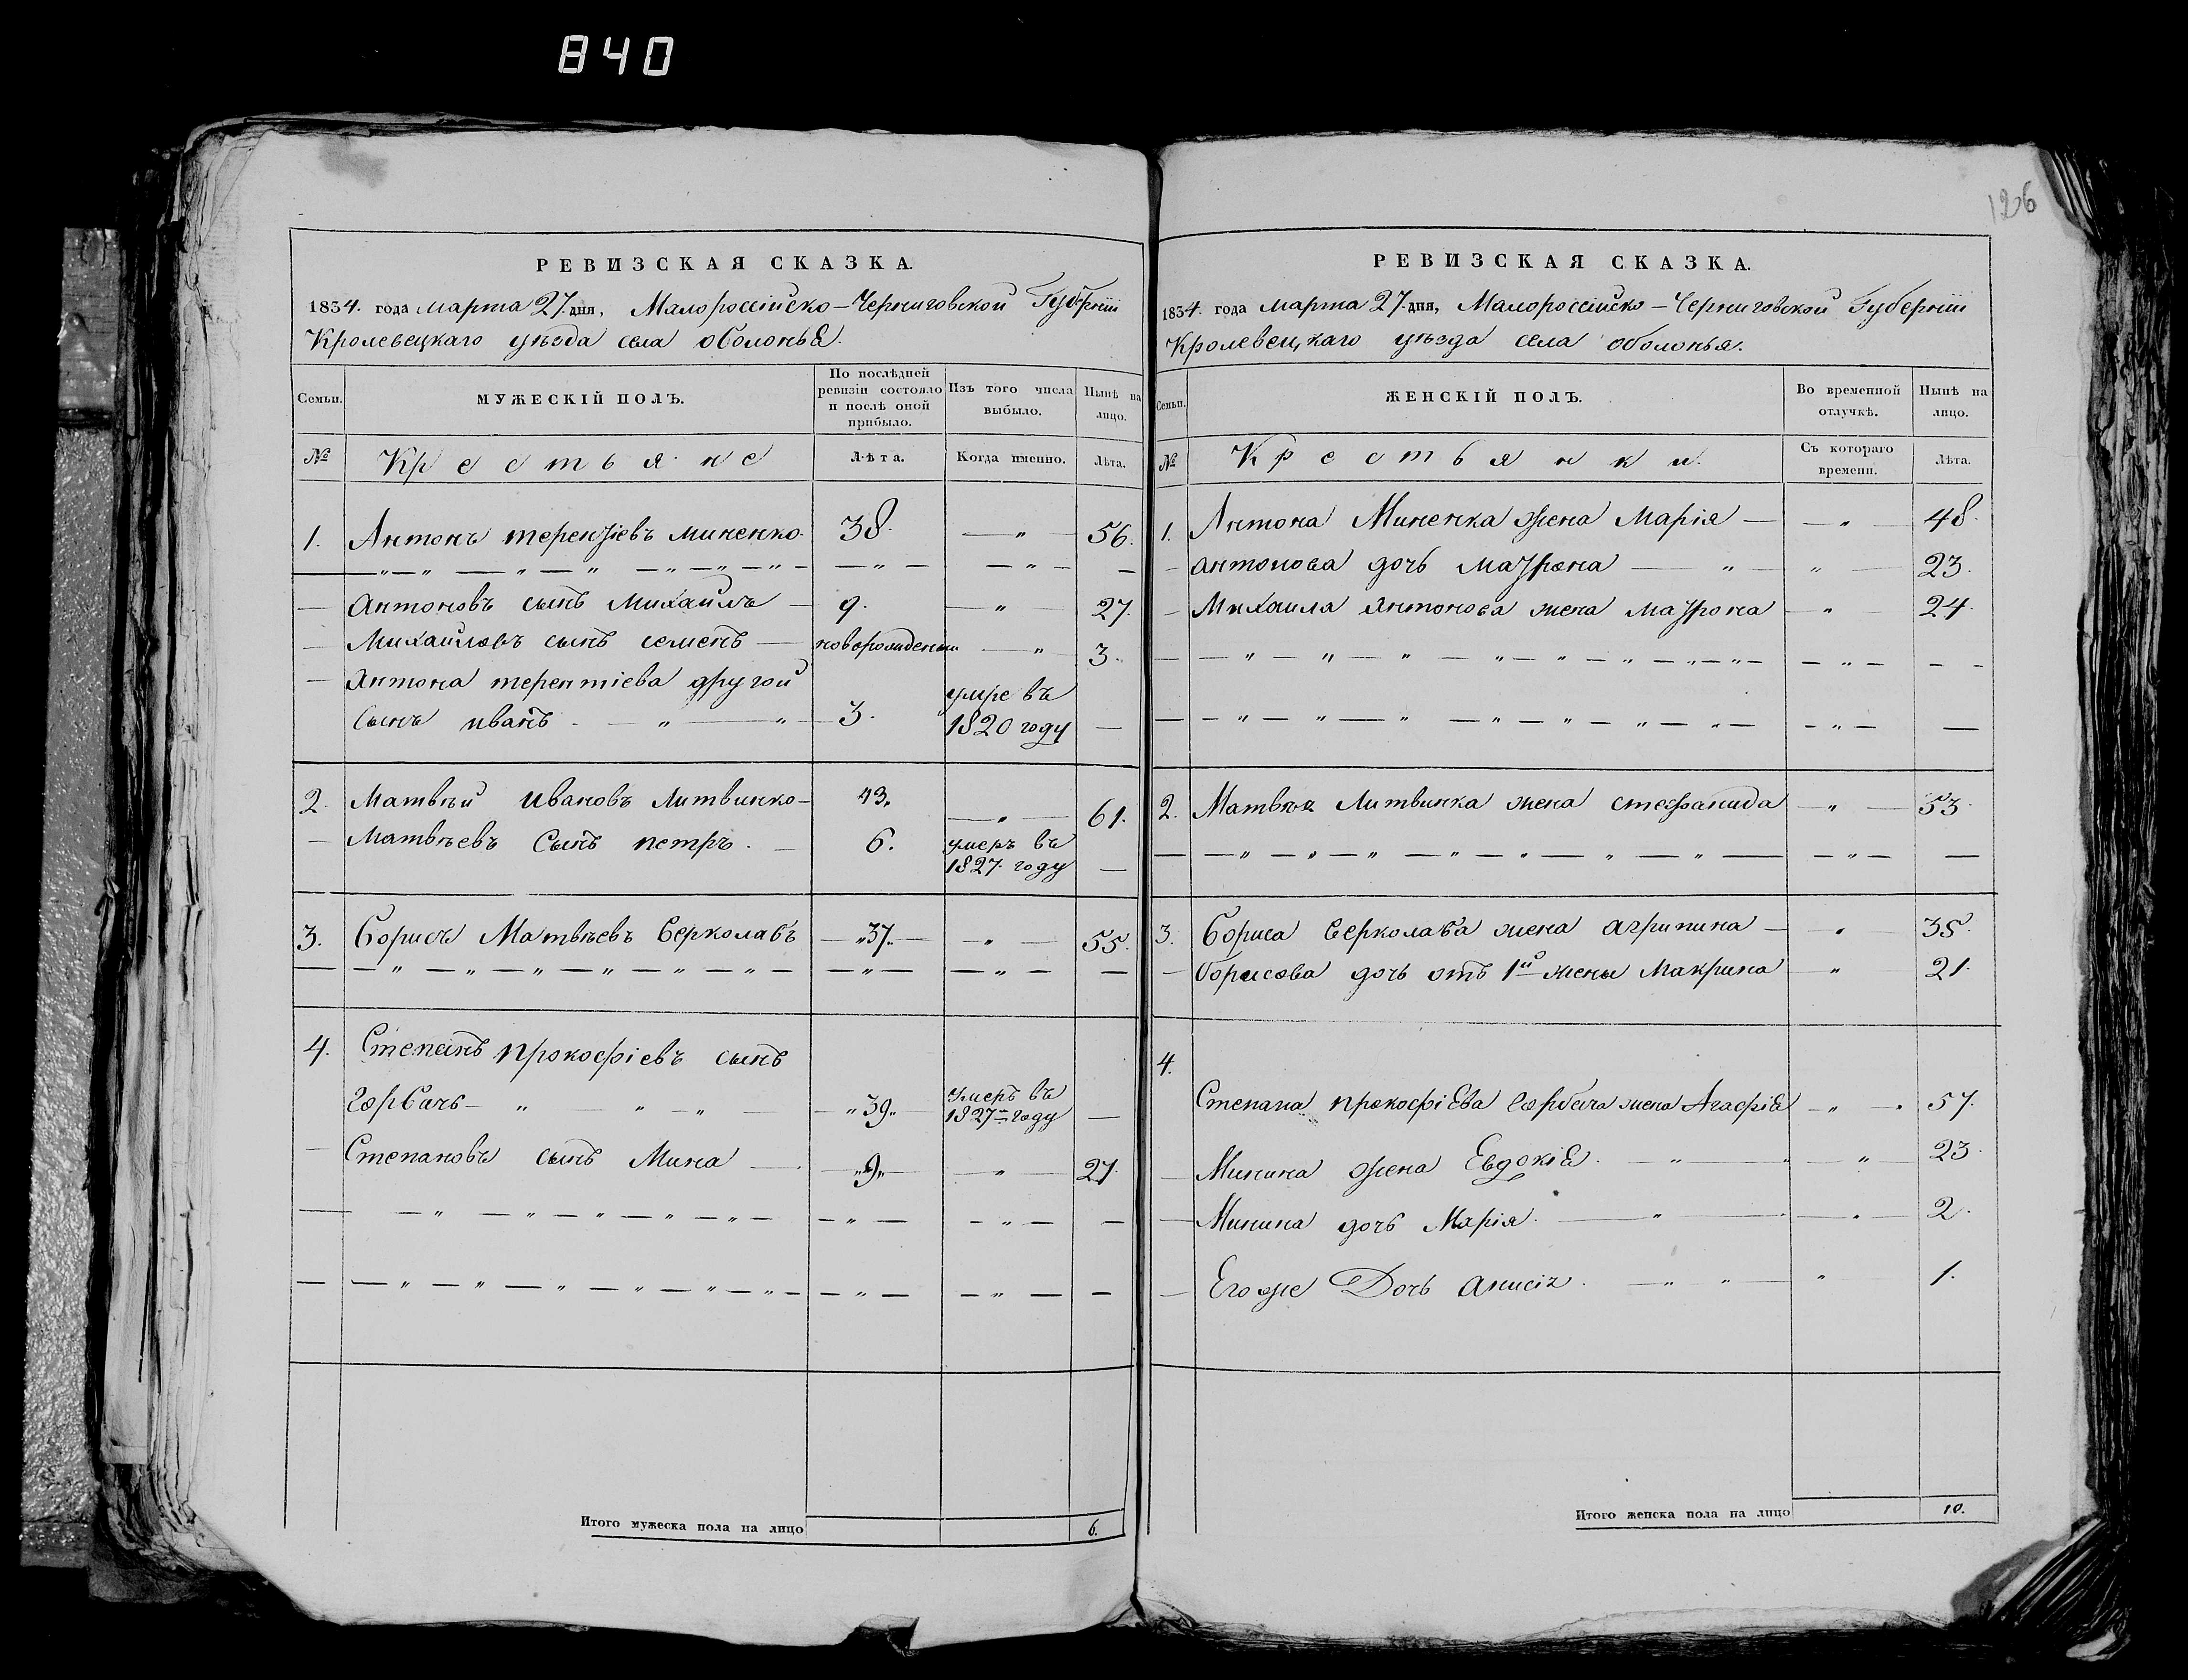 840
126
РЕВИЗСКАЯ СКАЗКА.
1834. года марта 27. дня, Малороссійско-Черниговской Губерніи
Кролевецкаго уѣзда села оболонья.
Семьи.
МУЖЕСКІЙ ПОЛЪ.
По послѣдней ревизіи состояло и послѣ оной прибыло.
Изъ того числа выбыло.
Нынѣ на лицо.
№ Крестьяне Лѣта. Когда именно. Лѣта.
1. Антонъ терентіевъ миненко. 38. — „ — 56.
— Антоновъ сынъ Михаилъ — 9. — „ — 27.
— Михайловъ сынъ семенъ — новорожденный — „ 3.
— Антона терентіева другой
сынъ иванъ. — „ — „ — 3. умре въ 1820 году —
2. Матвѣй ивановъ Литвинко — 43. — „ — 61.
— Матвѣевъ сынъ петръ. — 6. умеръ въ 1827. году —
3. Борисъ Матвѣевъ Серколавъ — „37„ — — „ — 55.
4. Степанъ прокофіевъ сынъ
горбачъ — „ — „ — „ — „39„ умеръ въ 1827м году —
— Степановъ сынъ Мина — „9„ — — „ — 27.
Итого мужеска пола на лицо 6.
РЕВИЗСКАЯ СКАЗКА.
1834. года марта 27. дня, Малороссійско-Черниговской Губерніи
Кролевецкаго уѣзда села оболонья.
Семьи.
ЖЕНСКІЙ ПОЛЪ.
Во временной отлучкѣ.
Нынѣ на лицо.
№ Крестьянки. Съ котораго времени. Лѣта.
1. Антона Миненка жена Марія — — „ — 48.
— антонова дочь Маурона — „ — „ — 23.
— Михаила Антонова жена маурона — „ — 24.
2. Матвѣя Литвинка жена стефанида — „ — 53.
3. Бориса Серколава жена агрипина — „ — 35.
— борисова дочь отъ 1й жены Макрина — „ 21.
4.
Степана прокофіева горбача жена Агафія — „ — 57.
— Минина жена Евдокія. — „ — „ — „ — 23.
— Минина дочь Марія. — „ — „ — 2.
— Егоже Дочь анисія. — „ — „ — „ 1.
Итого женска пола на лицо 10.